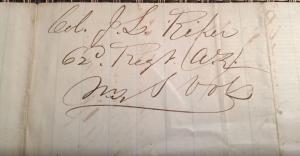 Col. J. L. Riker
62d. Regt (A.Z.)
N.Y. S. Vols